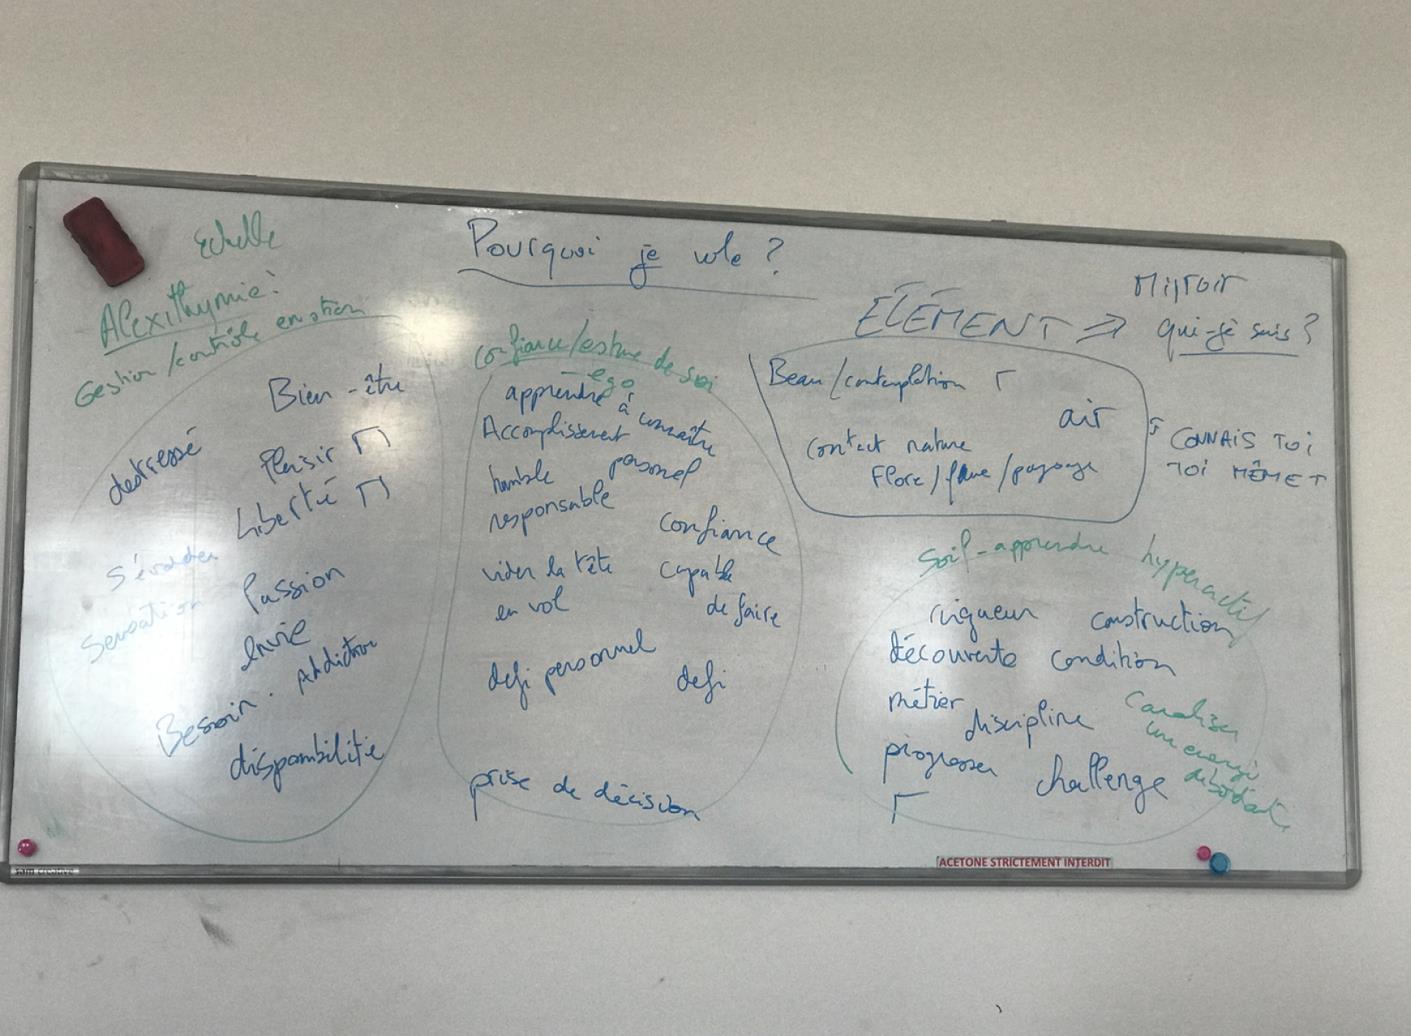 Pourquoi je vole ?
Echelle
Alexithymie :
Gestion/contrôle emotion
Bien-être
destressé
Plaisir
Liberté
S'évader
Sensation
Passion
envie
Besoin . Addiction
disponibilité
Confiance/estime de soi
- ego
apprendre à connaître
Accomplissement
personnel
humble
responsable
confiance
vider la tête
en vol
capable
de faire
defi personnel
defi
prise de décision
ÉLÉMENT ⇒
Miroir
qui-je suis ?
Beau/contemplation
air
contact nature
Flore/faune/paysage
CONNAIS TOI
TOI MÊME
Soif-apprendre hyperactif
rigueur construction
découverte condition
métier
discipline
progresser
challenge
Canaliser
une energi
débordante
ACETONE STRICTEMENT INTERDIT